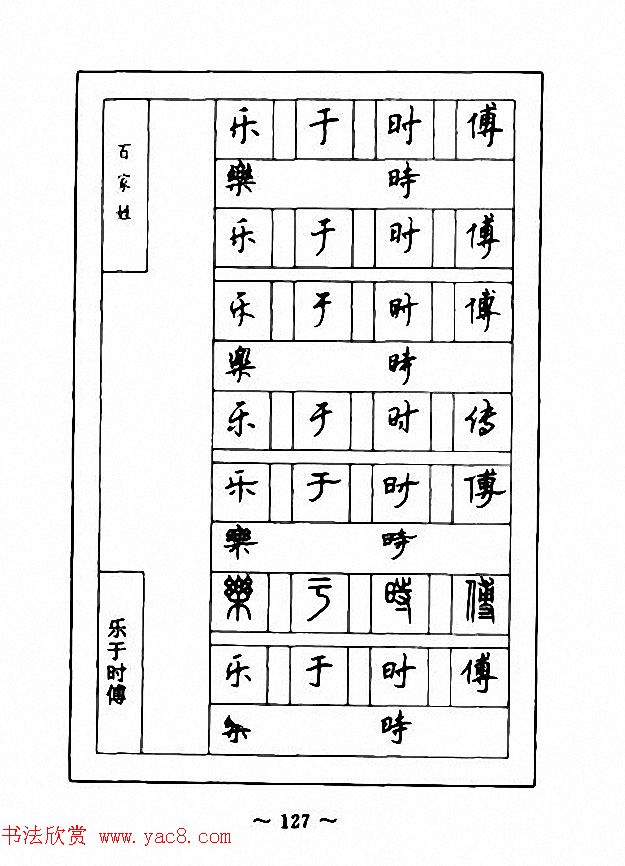 百家姓
乐于时傅
乐 于 时 傅
樂 時
乐 于 时 傅
乐 于 时 傅
樂 時
乐 于 时 传
乐 于 时 傅
樂 時
樂 亏 時 傅
乐 于 时 傅
時
～ 127 ～
书法欣赏 www.yac8.com